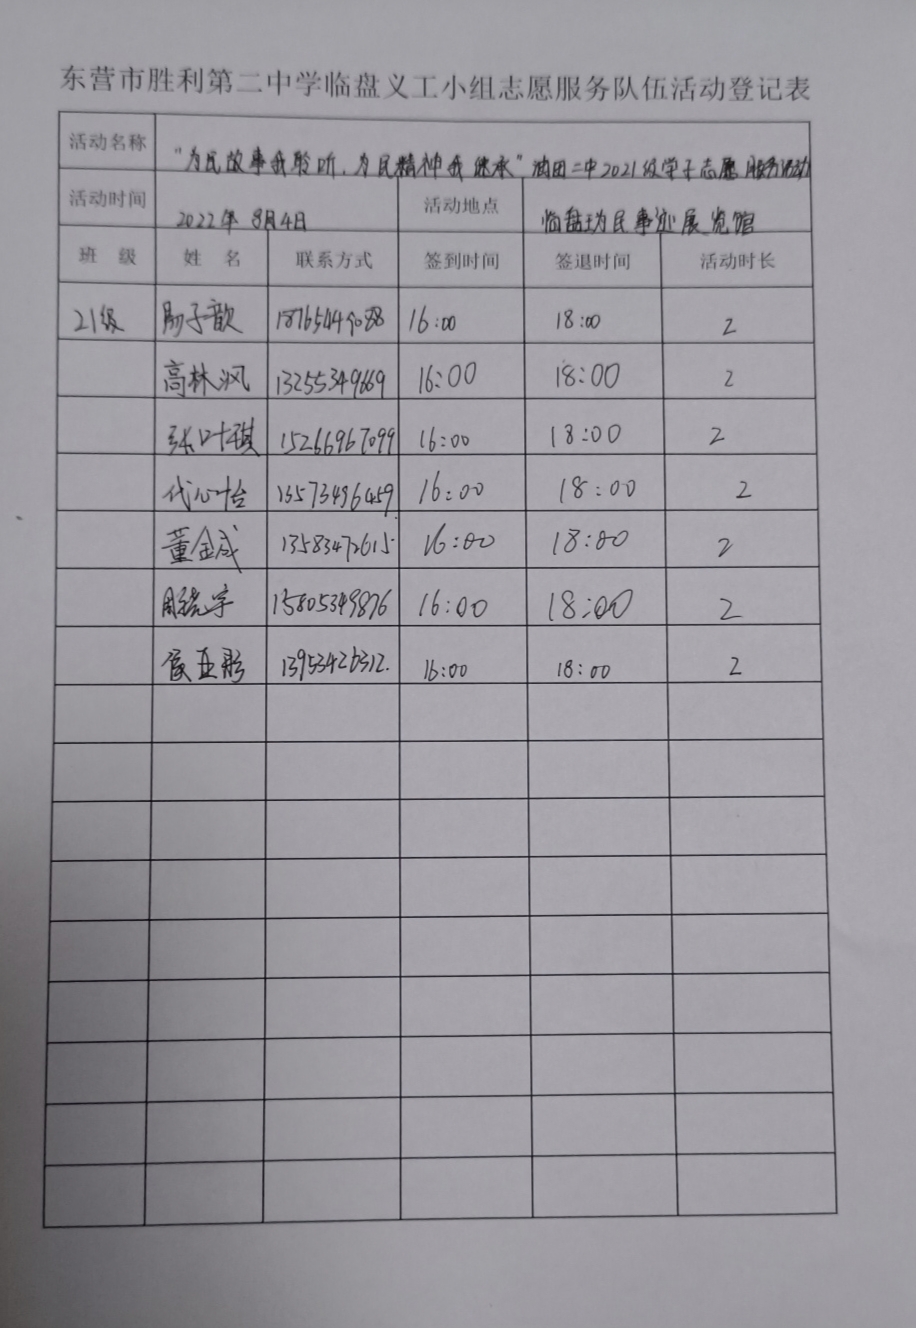 东营市胜利第二中学临盘义工小组志愿服务队伍活动登记表
活动名称 "为民故事我聆听、为民精神我继承"油田二中2021级学子志愿服务活动
活动时间 2022年8月4日 活动地点 临盘 为民事迹展览馆
班 级 姓 名 联系方式 签到时间 签退时间 活动时长
21级 子歆 16:00 18:00 2
高林沨 13255349669 16:00 18:00 2
张叶琪 15266967099 16:00 18:00 2
代心怡 13573496459 16:00 18:00 2
董金成 13583472615 16:00 18:00 2
周 宇 15805349876 16:00 18:00 2
侯亚彤 13953426312. 16:00 18:00 2